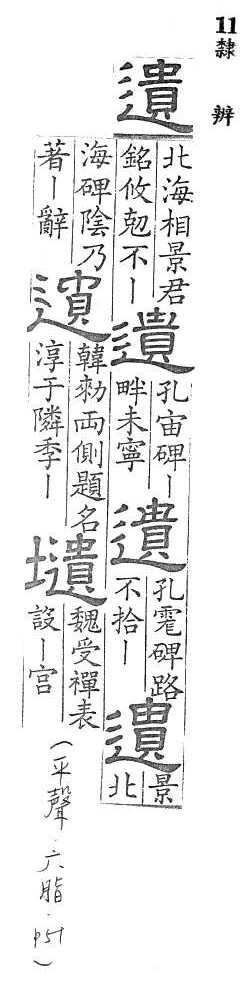 11 隸辨
遺
北海相景君
銘攸勊不ー
遺
孔宙碑ー
畔未寧
遺
孔碑路
不拾ー
遺
景
北
海碑陰乃
著ー辭
遺
韓勑兩側題名
淳于隣季ー
壝
魏受禪表
設ー宫
(平聲·六脂·p51)